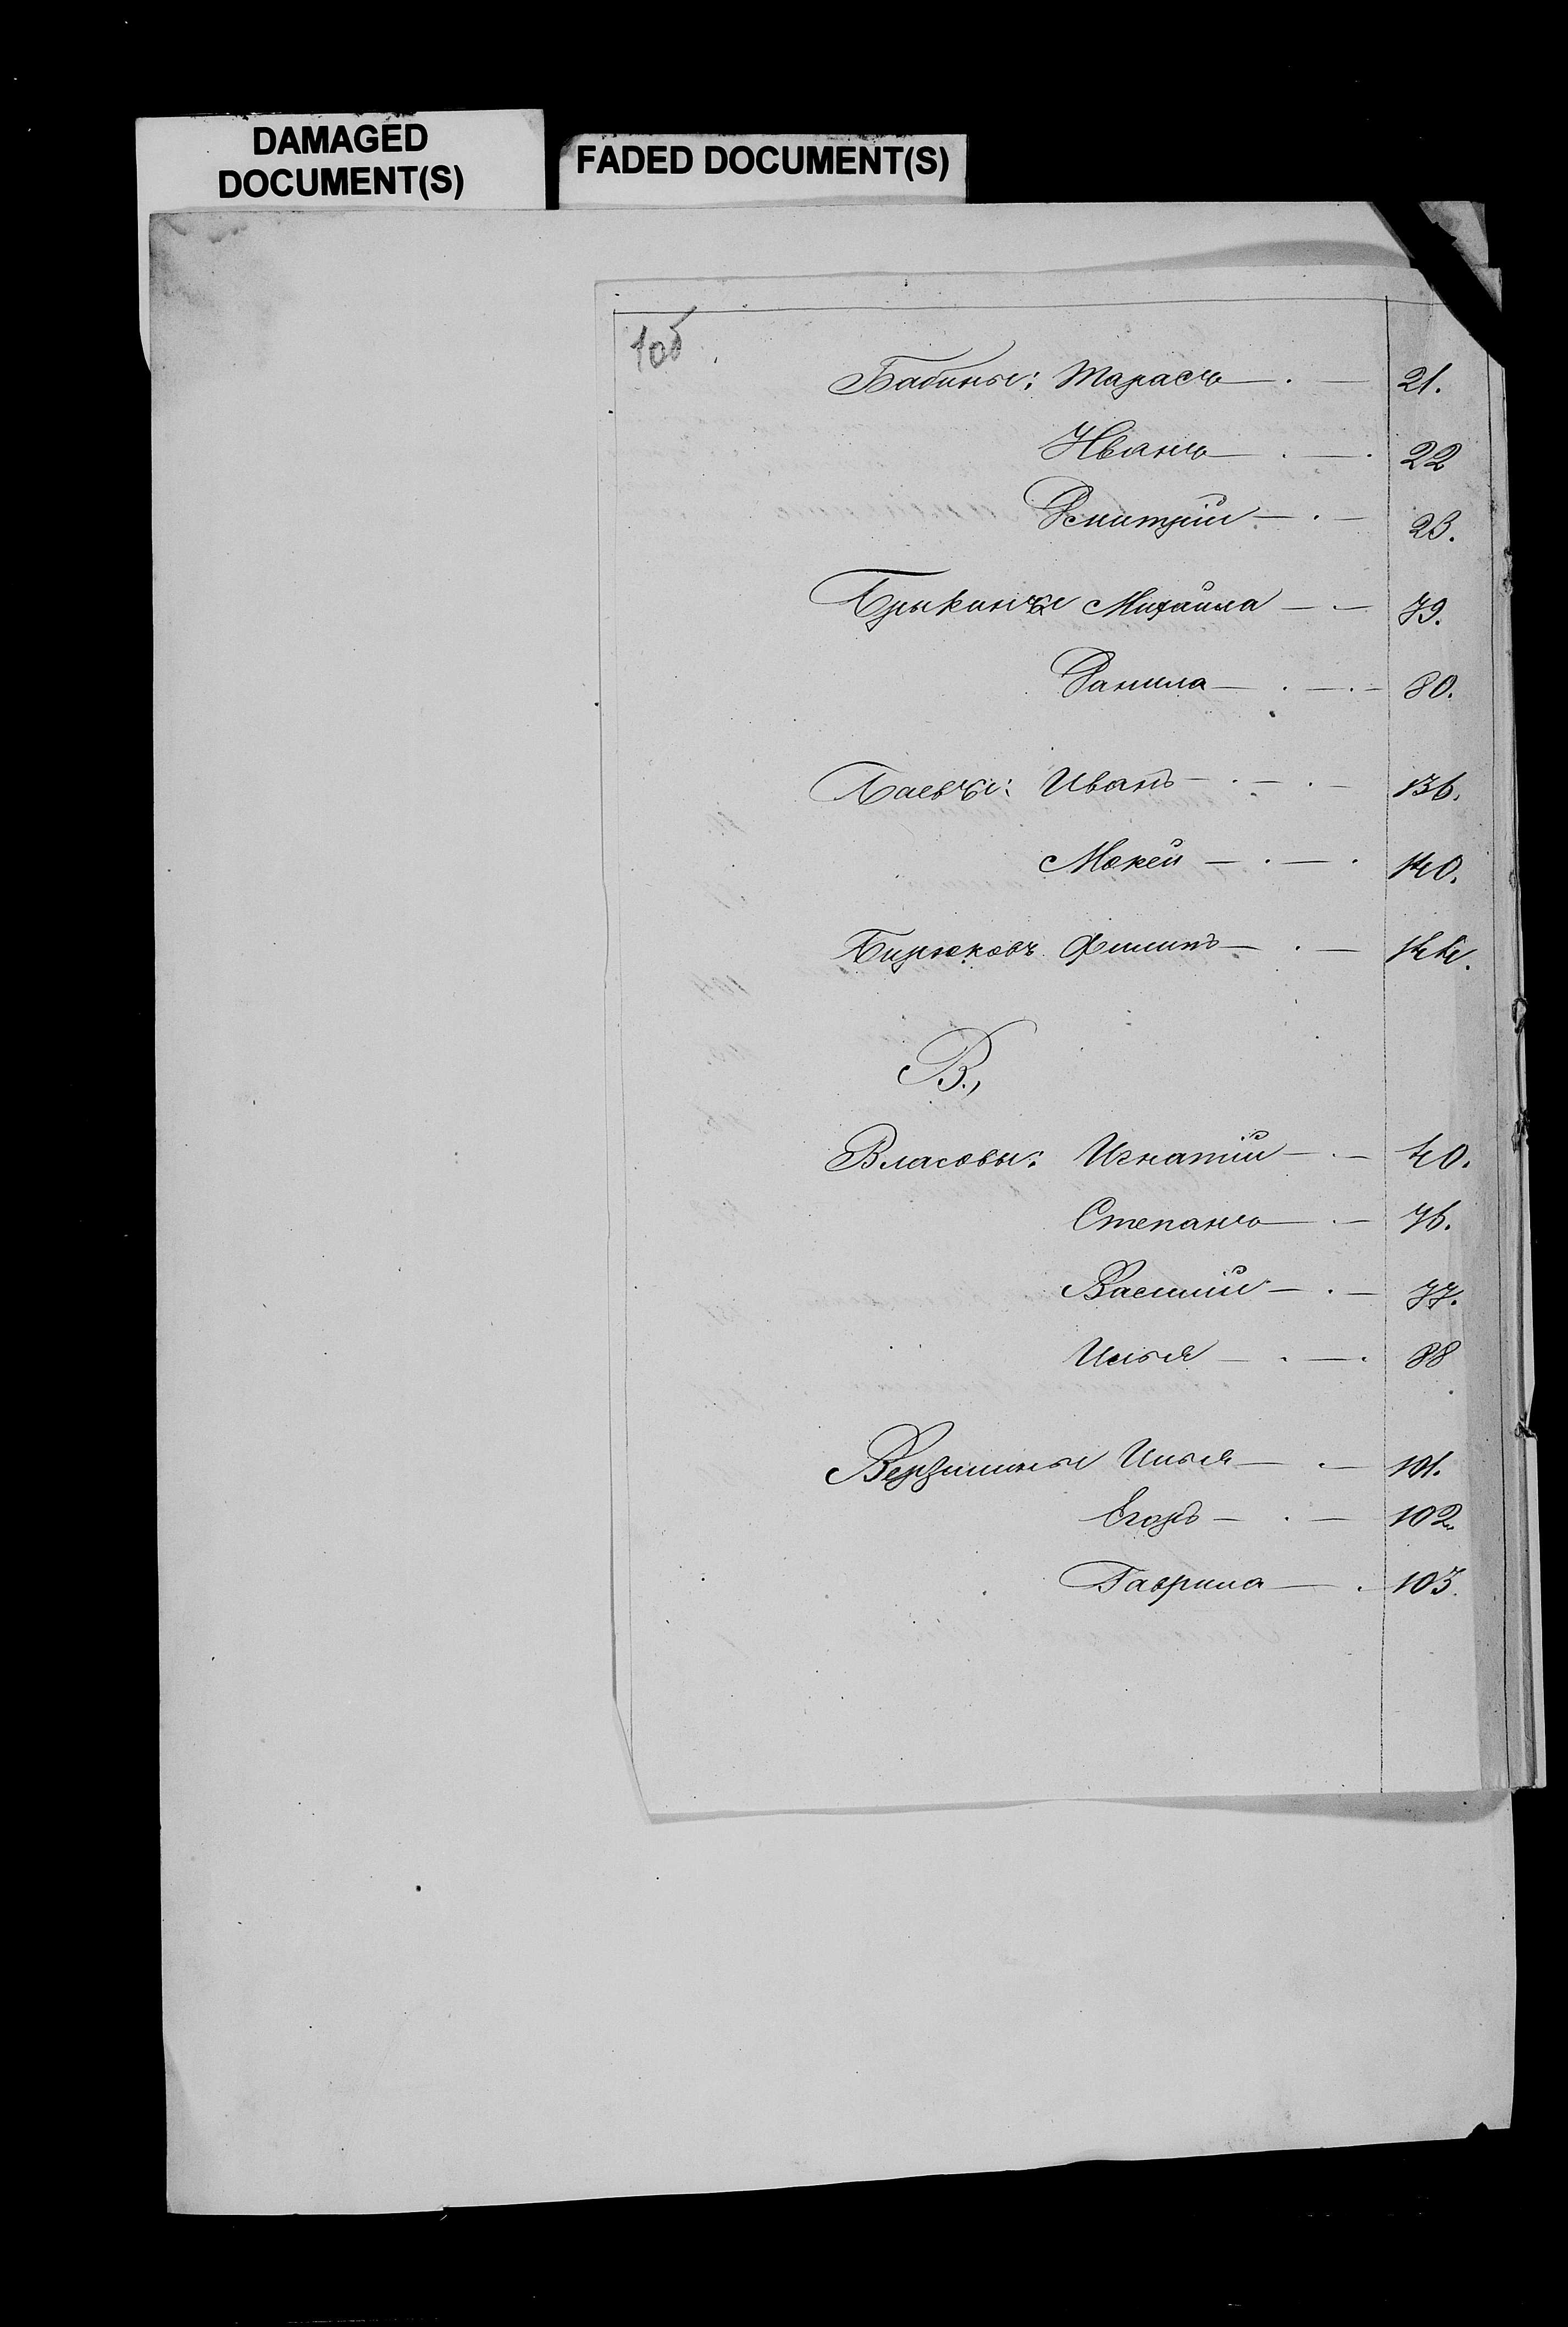 DAMAGED
DOCUMENT(S)
FADED DOCUMENT(S)
1об
Бабины: Тарасъ — . — 21.
Иванъ — . — . 22
Дмитрій — . — 23.
Брыкины Михаила — . — 79.
Данила — . — . — 80.
Баевы: Иванъ — . — . — 136.
Мокей — . — . 140.
Бирюковъ Филипъ — . — 144.
В.,
Власовы: Игнатій — . — 40.
Степанъ — . — 76.
Василій — . — 77.
Илья — . — . 88
Вершинины Илья — . — 101.
Егоръ — . — 102.
Гаврила — . 103.